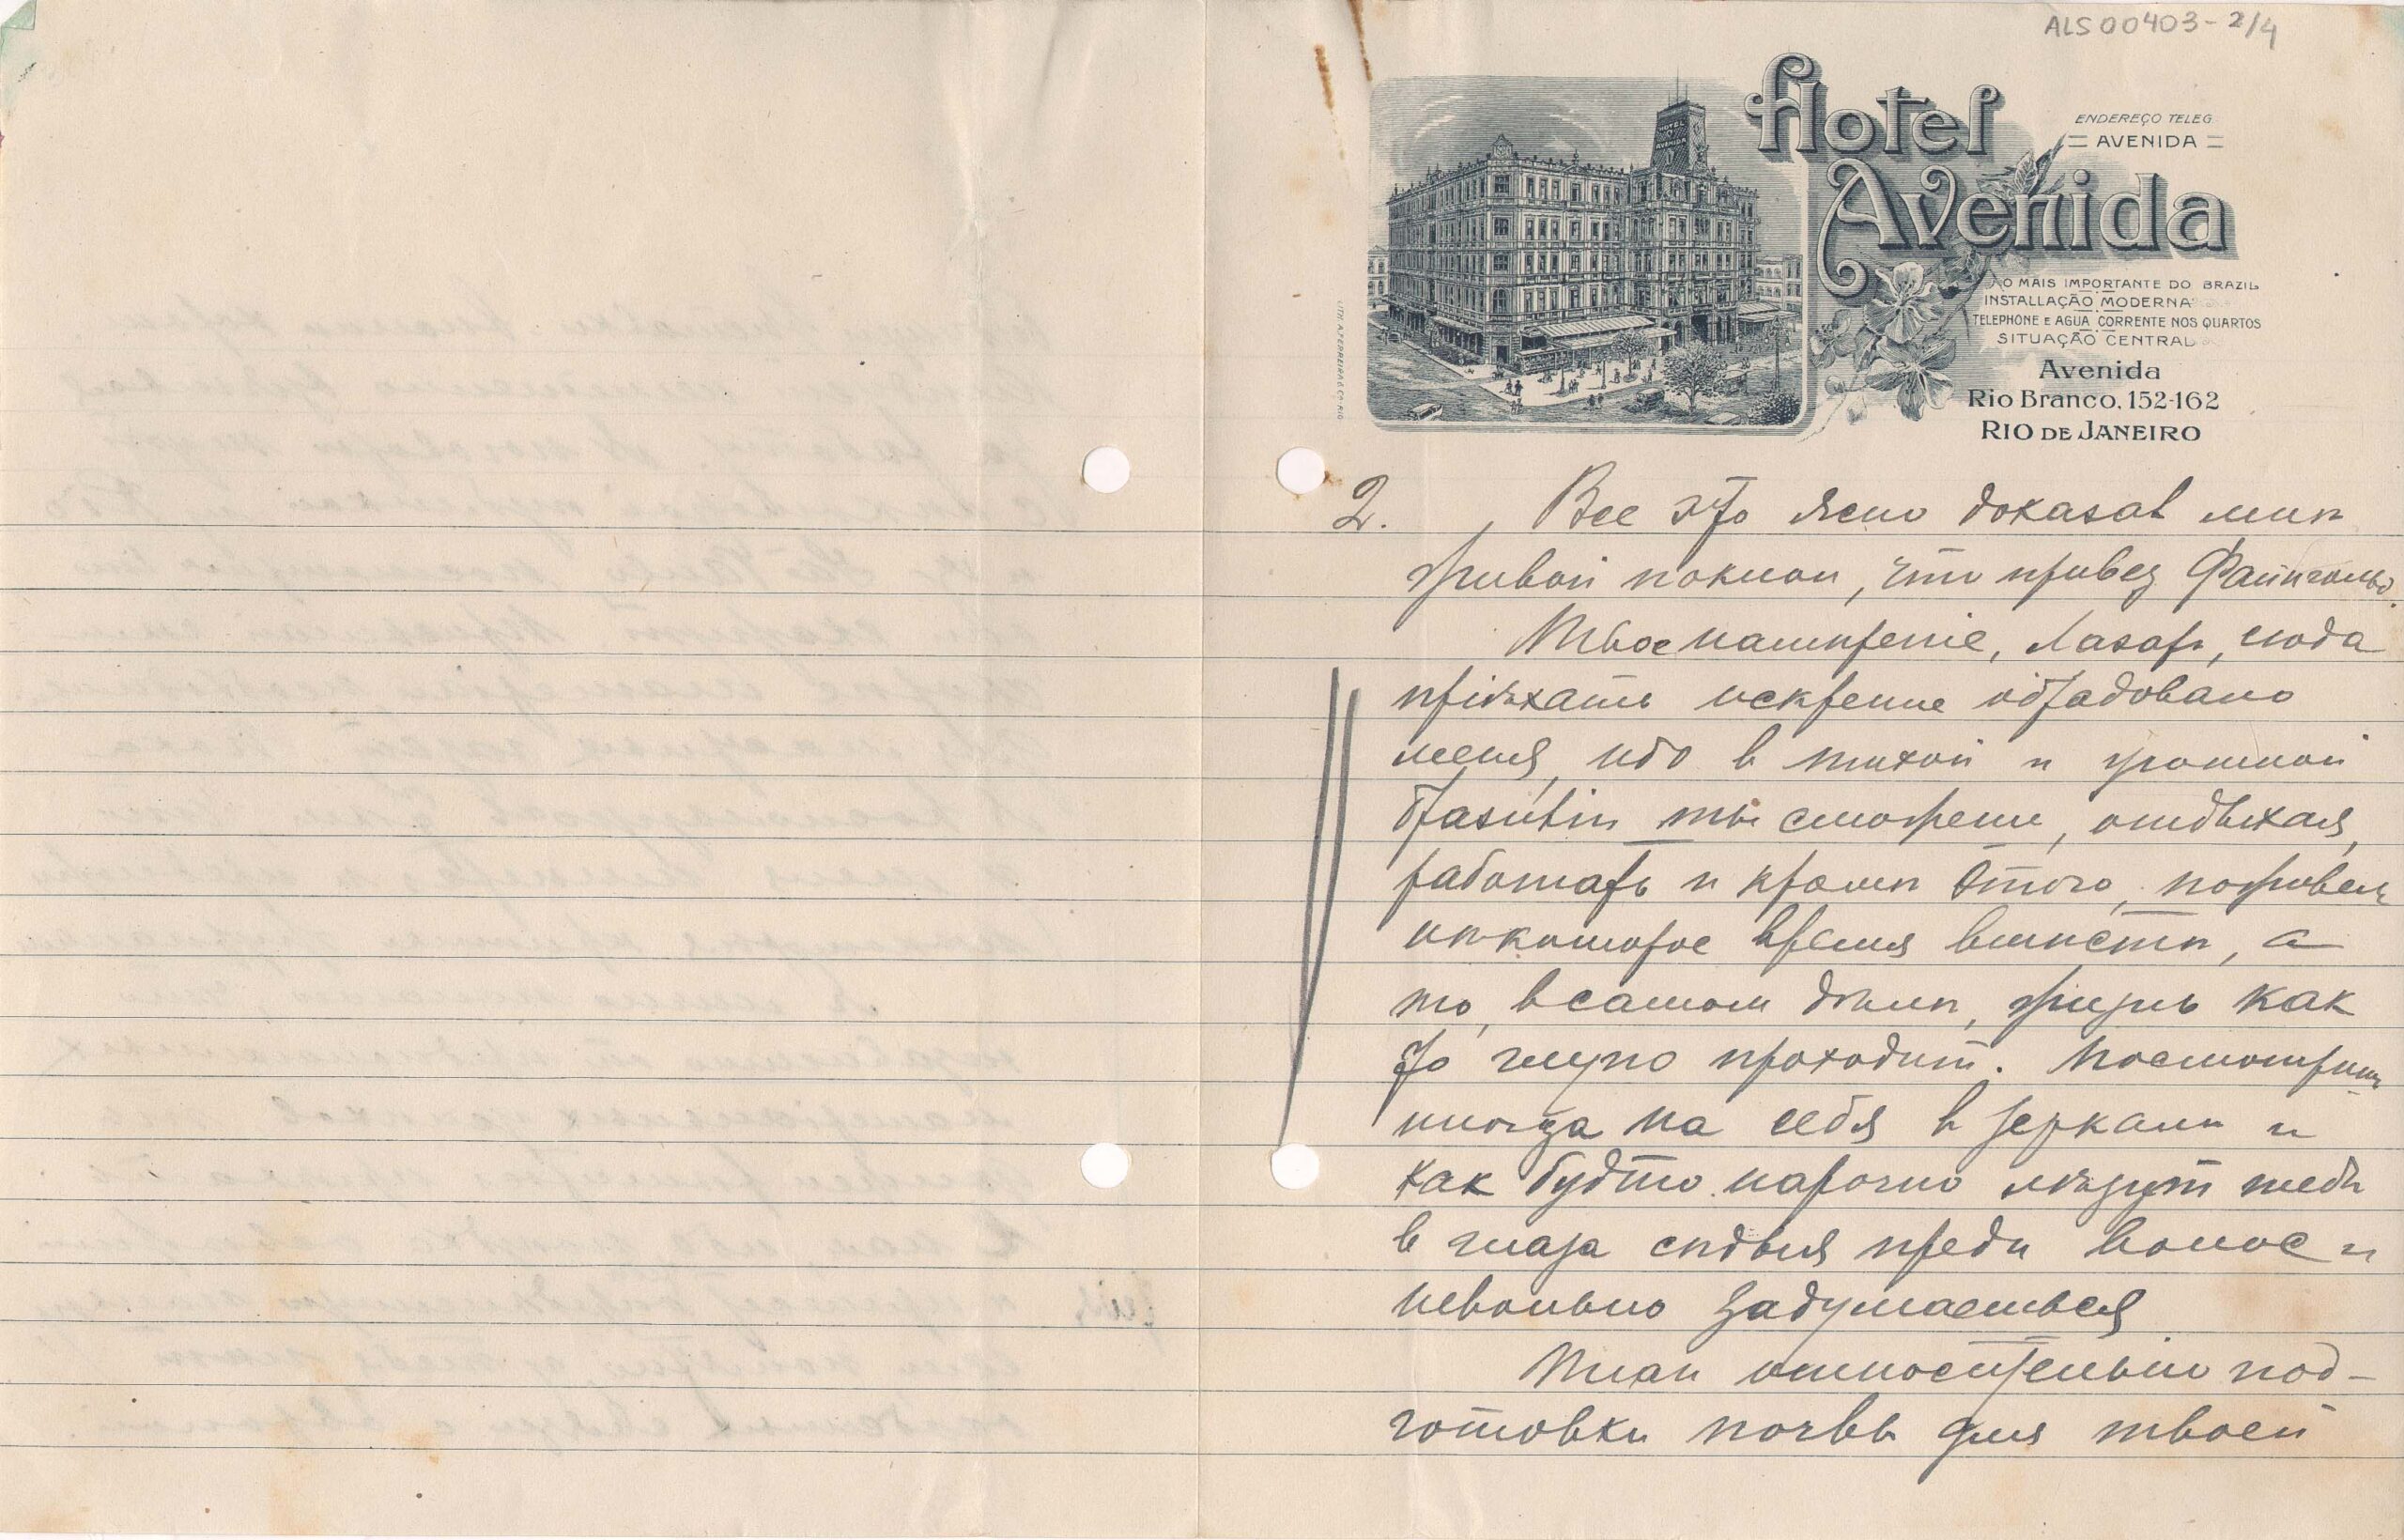 ALS00403-2/4
Hotel
Avenida
ENDEREÇO TELEG.
AVENIDA
O MAIS IMPORTANTE DO BRAZIL
INSTALLAÇÃO MODERNA
TELEPHONE E AGUA CORRENTE NOS QUARTOS
SITUAÇÃO CENTRAL
Avenida
Rio Branco, 152-162
RIO DE JANEIRO
LITH. A. FERREIRA & Co. RIO
HOTEL
AVENIDA
2. Все это ясно доказал мнѣ
живой поклон, что привез
Твое намѣреніе, Лазарь, сюда
пріѣхать искренне обрадовало
меня, ибо в тихой и
Бразиліи ты сможешь, отдыхая,
работать и кромѣ этого, поживем
нѣкоторое время вмѣстѣ, а
то, в самом дѣлѣ, жизнь как
то глупо проходит. Посмотришь
иногда на себя в зеркалѣ и
как будто нарочно лѣзут тебѣ
в глаза сѣдыя пряди волос и
невольно задумаешься
План относительно под-
готовки почвы для твоей